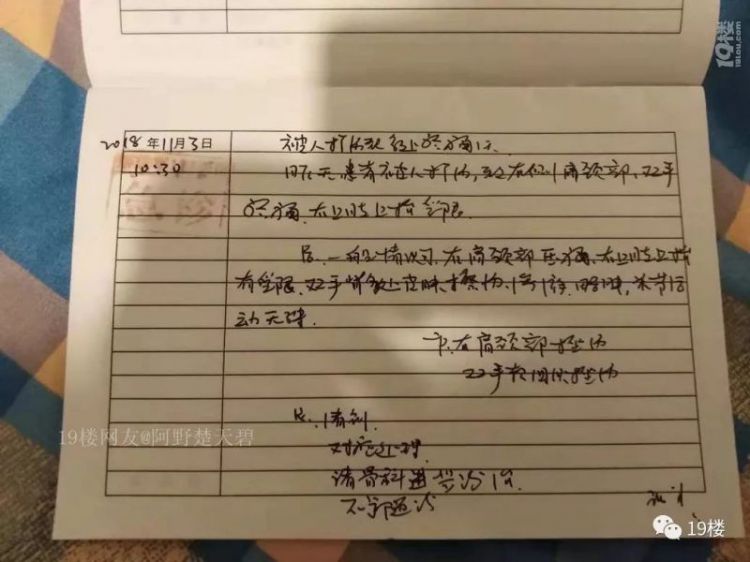 19楼
19lou.com
2018年11月3日 被人打伤致多处疼痛1天
10:30 昨天患者被人打伤,致右侧肩颈部、双手
疼痛,右上肢上抬受限.
一般情况可,右肩颈部压痛,右上肢上抬
有受限,双手背多处皮肤擦伤,关节活
动无殊.
右肩颈部挫伤
双手软组织挫伤
清创
对症处理
请骨科进一步诊治
不适随诊
19楼网友@阿野楚天碧
19楼